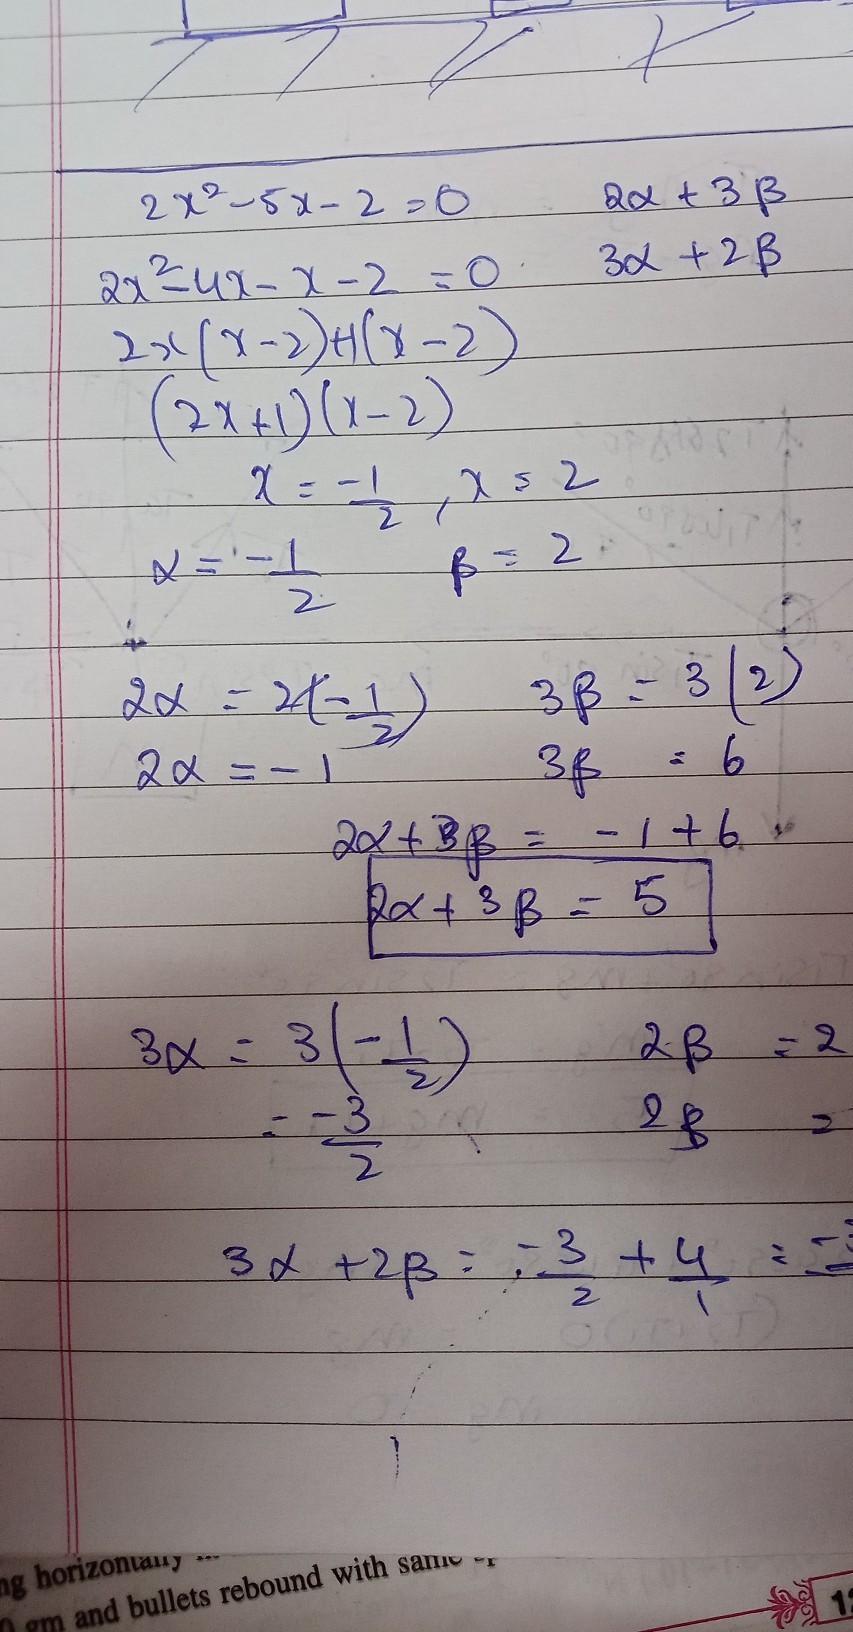 2x² - 5x - 2 = 0 2α + 3β
2x² - 4x - x - 2 = 0 3α + 2β
2x(x-2)+1(x-2)
(2x+1)(x-2)
x = -1/2, x = 2
α = -1/2 β = 2
2α = 2(-1/2) 3β = 3(2)
2α = -1 3β = 6
2α + 3β = -1 + 6
2α + 3β = 5
3α = 3(-1/2) 2β = 2
= -3/2 2β =
3α + 2β = -3/2 + 4/1 =
ng horizontally
gm and bullets rebound with same